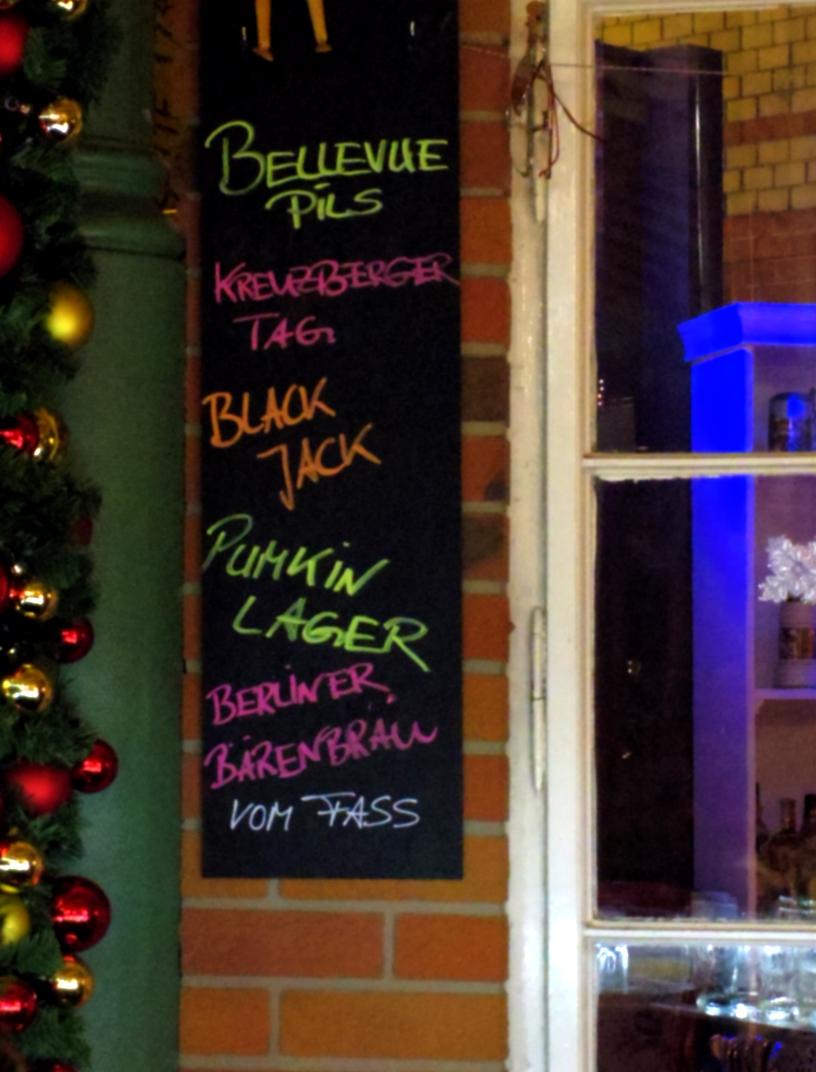 BELLEVUE
PILS
KREUZBERGER
TAG
BLACK
JACK
PUMKIN
LAGER
BERLINER
BÄRENBRÄU
VOM FASS